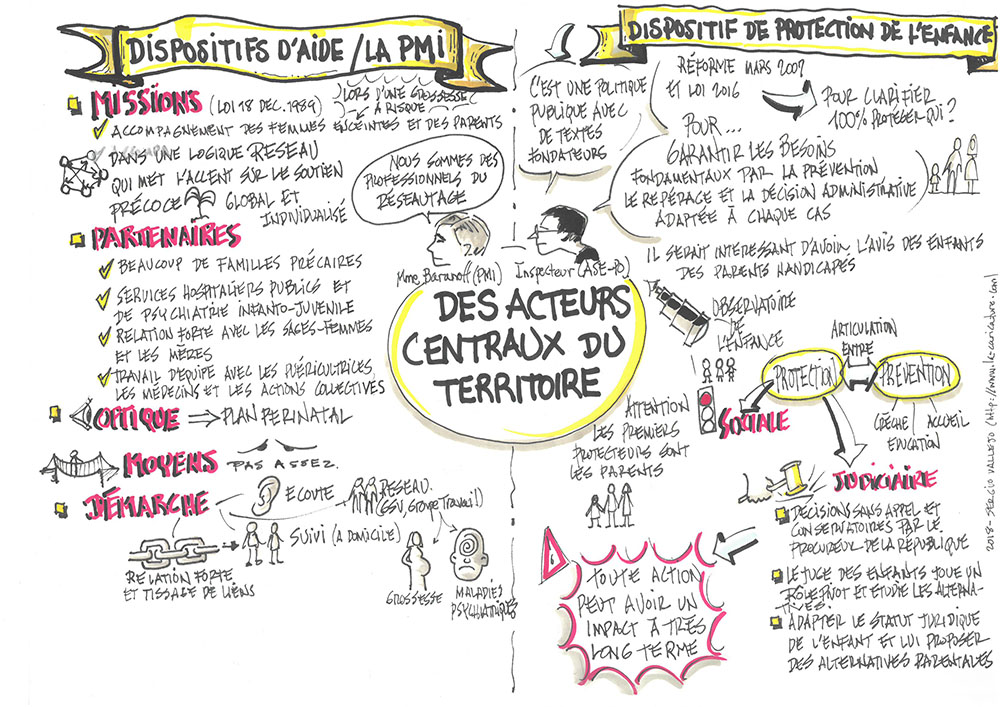 DISPOSITIFS D'AIDE / LA PMI
MISSIONS (LOI 18 DEC. 1989)
LORS D'UNE GROSSESSE
À RISQUE
ACCOMPAGNEMENT DES FEMMES ENCEINTES ET DES PARENTS
DANS UNE LOGIQUE RESEAU
QUI MET L'ACCENT SUR LE SOUTIEN
PRÉCOCE GLOBAL ET
INDIVIDUALISÉ
NOUS SOMMES DES
PROFESSIONNELS DU
RESEAUTAGE
PARTENAIRES
BEAUCOUP DE FAMILLES PRÉCAIRES
SERVICES HOSPITALIERS PUBLICS ET
DE PSYCHIATRIE INFANTO-JUVENILE
RELATION FORTE AVEC LES SAGES-FEMMES
ET LES MÈRES
TRAVAIL D'EQUIPE AVEC LES PUÉRICULTRICES,
LES MÉDECINS ET LES ACTIONS COLLECTIVES
OPTIQUE PLAN PERINATAL
MOYENS PAS ASSEZ.
DÉMARCHE
ECOUTE
RESEAU.
(GSV, Groupe Travail)
SUIVI (A DOMICILE)
RELATION FORTE
ET TISSAGE DE LIENS
GROSSESSE
MALADIES
PSYCHIATRIQUES
Mme Baranoff (PMI)
Inspecteur (ASE-PO)
DES ACTEURS
CENTRAUX DU
TERRITOIRE
DISPOSITIF DE PROTECTION DE L'ENFANCE
C'EST UNE POLITIQUE
PUBLIQUE AVEC
DE TEXTES
FONDATEURS
RÉFORME MARS 2007
ET LOI 2016
POUR CLARIFIER
100% PROTEGER QUI ?
POUR...
GARANTIR LES BESOINS
FONDAMENTAUX PAR LA PRÉVENTION
LE REPÉRAGE ET LA DÉCISION ADMINISTRATIVE
ADAPTÉE À CHAQUE CAS
IL SERAIT INTERESSANT D'AVOIR L'AVIS DES ENFANTS
DES PARENTS HANDICAPÉS
OBSERVATOIRE
DE
L'ENFANCE
ARTICULATION
ENTRE
PROTECTION
PRÉVENTION
CRÈCHE ACCUEIL
EDUCATION
SOCIALE
ATTENTION
LES PREMIERS
PROTECTEURS SONT
LES PARENTS
JUDICIAIRE
DÉCISIONS SANS APPEL ET
CONSERVATOIRES PAR LE
PROCUREUR DE LA RÉPUBLIQUE
LE JUGE DES ENFANTS JOUE UN
RÔLE PIVOT ET ETUDIE LES ALTERNA-
TIVES.
ADAPTER LE STATUT JURIDIQUE
DE L'ENFANT ET LUI PROPOSER
DES ALTERNATIVES PARENTALES
TOUTE ACTION
PEUT AVOIR UN
IMPACT À TRÈS
LONG TERME
2018- SERGIO VALLEJO (http://www.le-caricadore.com)